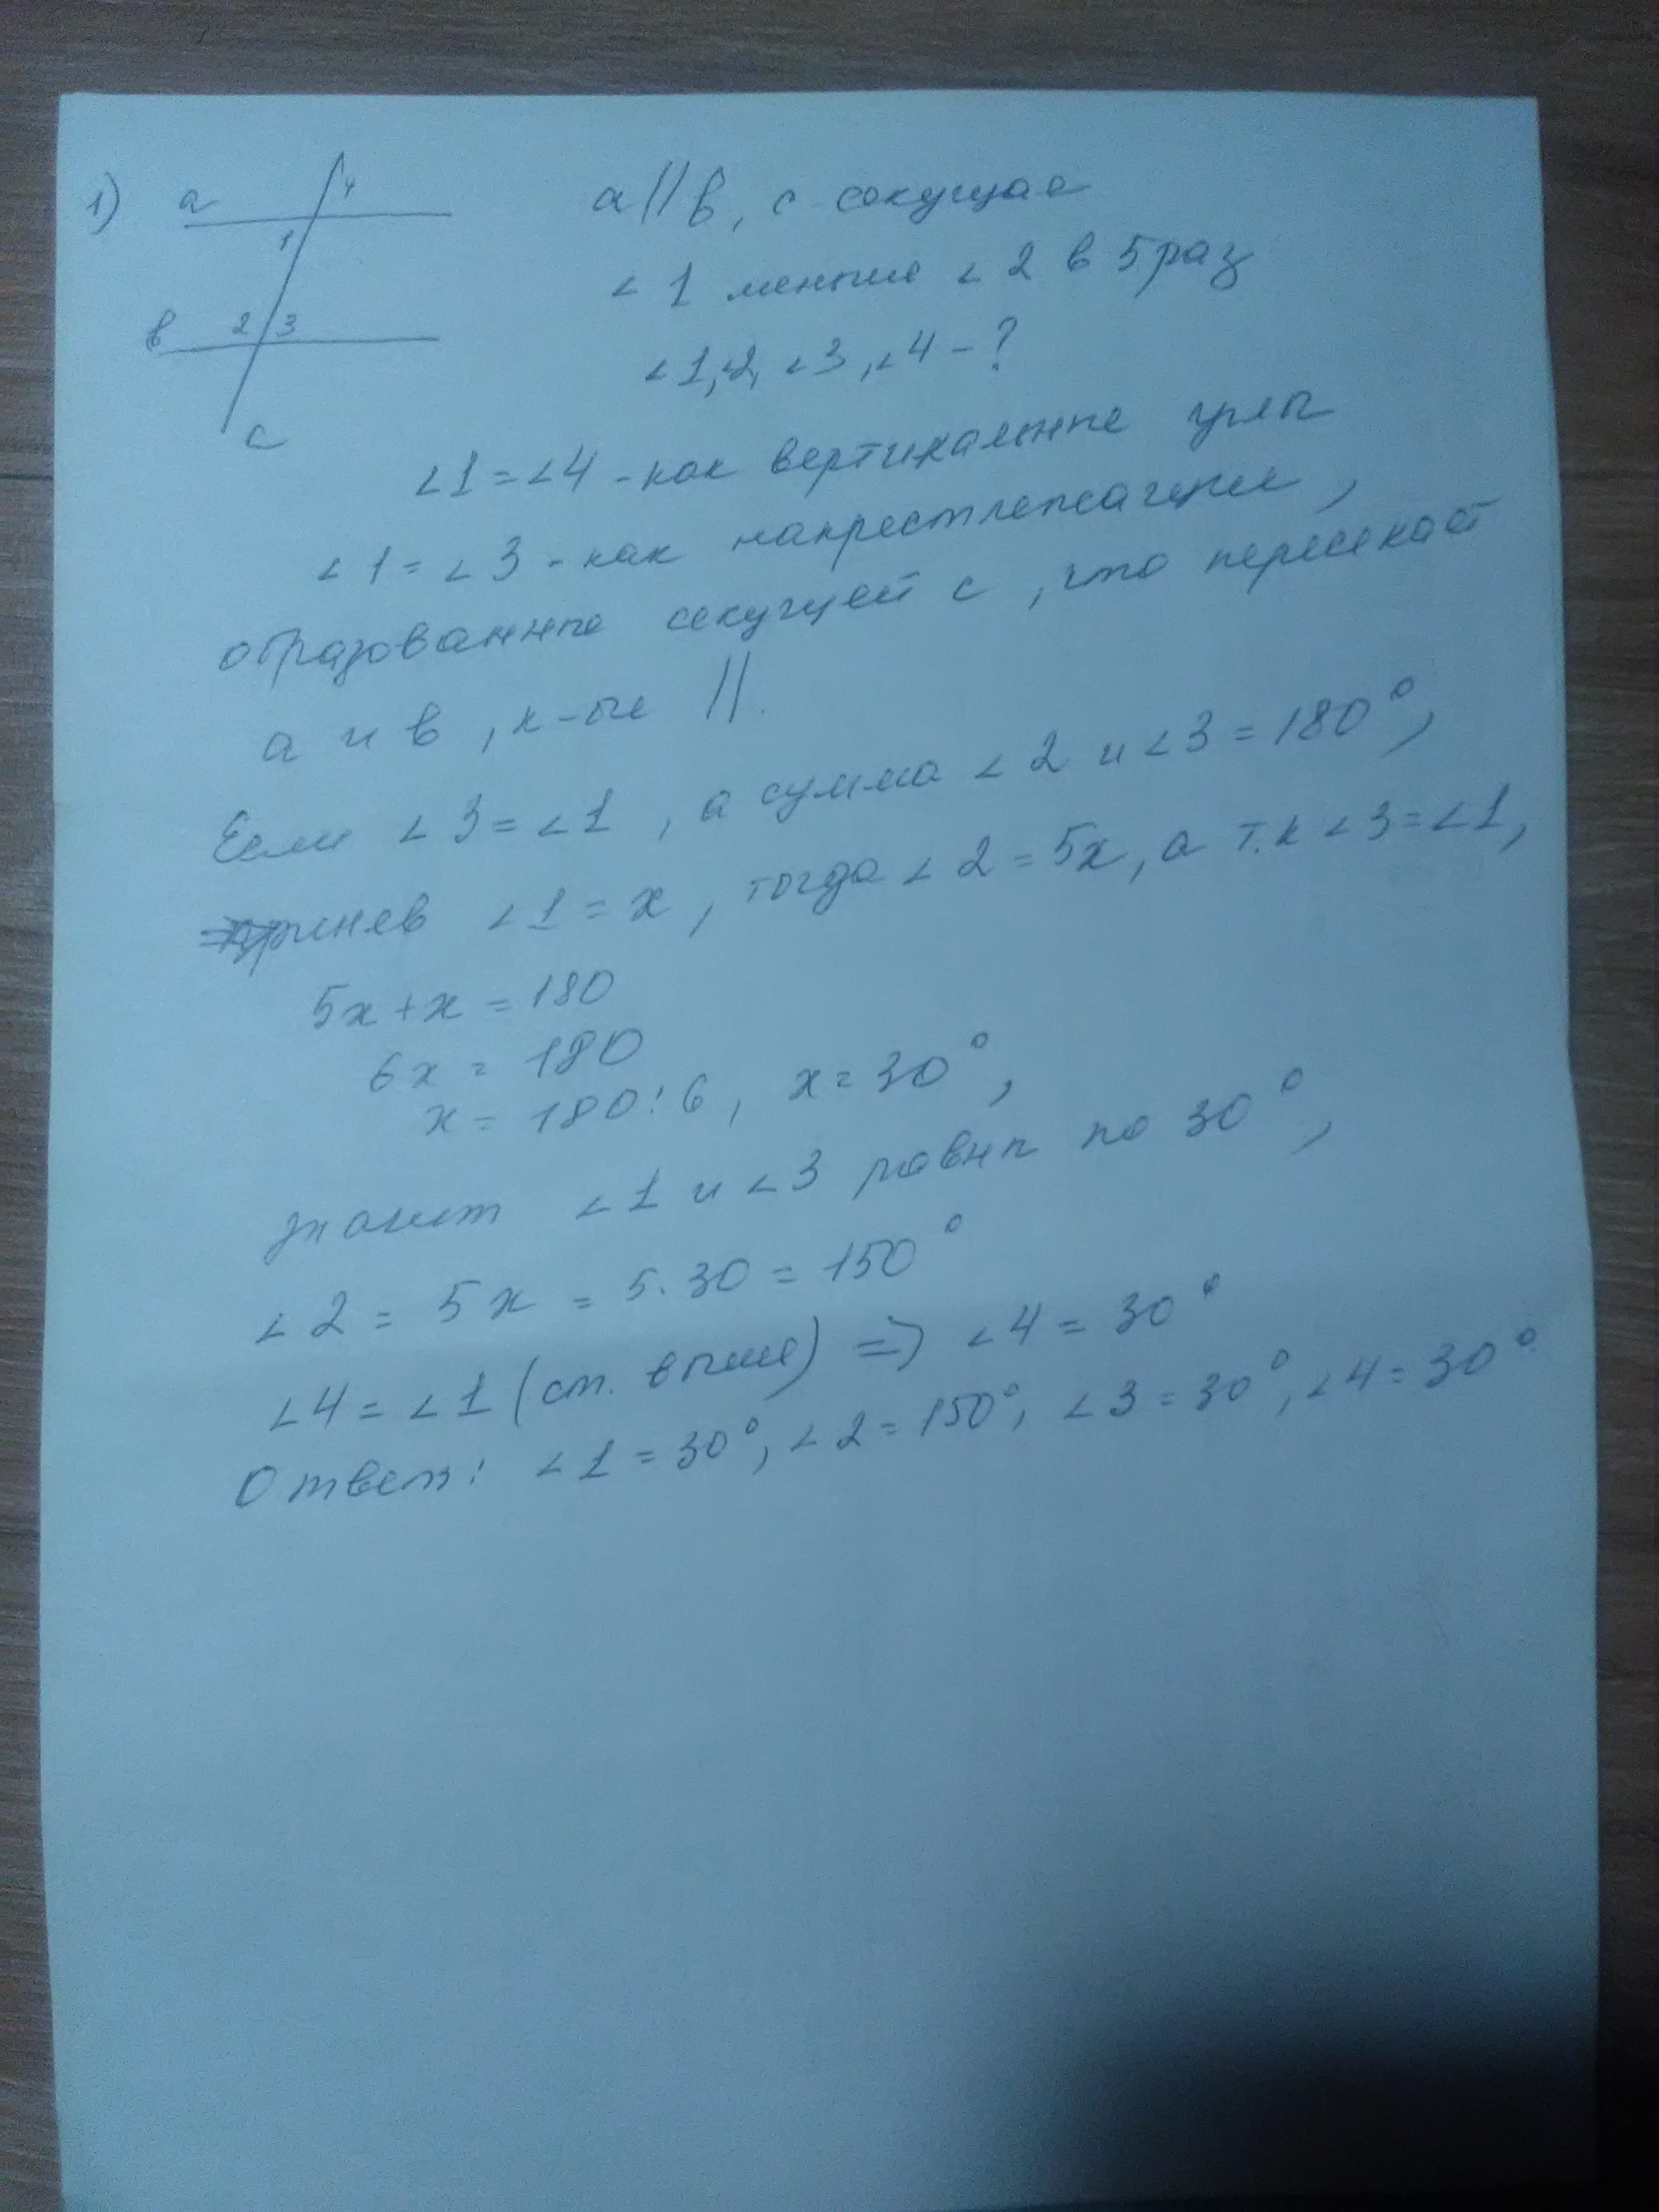 1) а 4 а || в, с секущая
1 ∠1 меньше ∠2 в 5 раз
в 2 3 ∠1, ∠2, ∠3, ∠4 - ?
с
∠1 = ∠4 - как вертикальные углы
∠1 = ∠3 - как накрестлежащие,
образованные секущей с, что пересекает
а и в, к-ые ||.
Если ∠3 = ∠1, а сумма ∠2 и ∠3 = 180°,
приняв ∠1 = x, тогда ∠2 = 5x, а т.к ∠3 = ∠1,
5x + x = 180
6x = 180
x = 180 : 6, x = 30°,
значит ∠1 и ∠3 равны по 30°,
∠2 = 5x = 5 · 30 = 150°
∠4 = ∠1 (см. выше) => ∠4 = 30°
Ответ: ∠1 = 30°, ∠2 = 150°, ∠3 = 30°, ∠4 = 30°